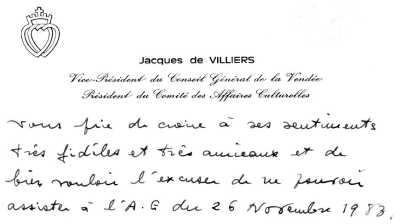 Jacques de VILLIERS
Vice-Président du Conseil Général de la Vendée
Président du Comité des Affaires Culturelles
vous prie de croire à ses sentiments
très fidèles et très amicaux et de
bien vouloir l'excuser de ne pouvoir
assister à l'A.G du 26 Novembre 1983.